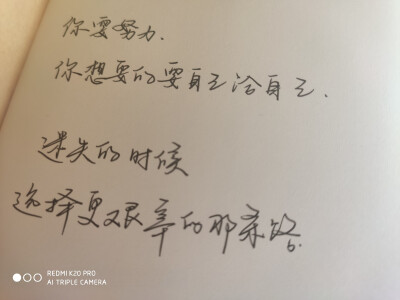 你要努力.
你想要的要自己给自己.
迷失的时候
选择更艰辛的那条路.
REDMI K20 PRO
AI TRIPLE CAMERA